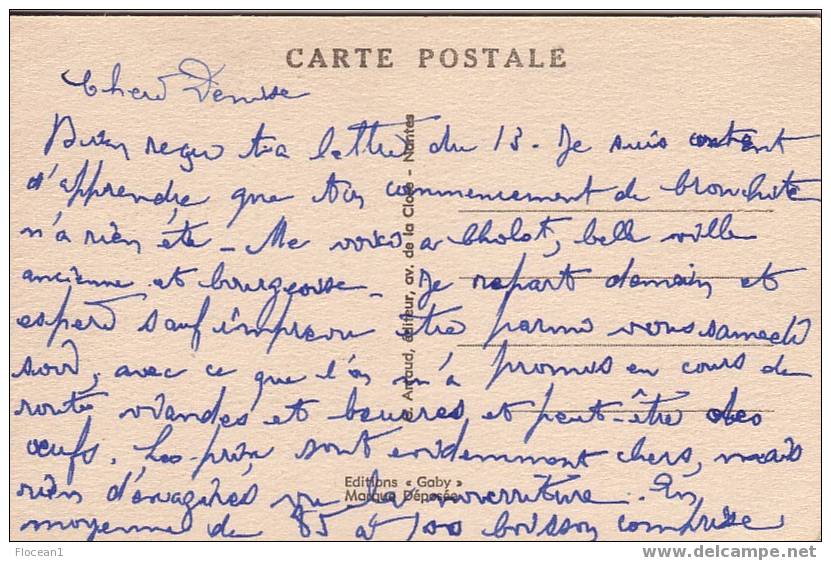 CARTE POSTALE
Cherd Denise
Bien reçu ta lettre du 13. Je suis content
d'apprendre que ton commencement de bronchite
n'a rien été - Me voici a Cholet, belle ville
ancienne et bourgeoise - Je repart demain et
espere sauf imprevu être parmi vous samedi
soir, avec ce que l'on m'a promis en cours de
route viandes et beurres et peut-être des
oeufs. Les prix sont evidemment chers, mais
rien d'exagérés, vu la nourriture. En
moyenne de 85 à 100 boisson comprise
Artaud, éditeur, av. de la Close - Nantes
Editions « Gaby »
Marque Déposée
Flocean1
www.delcampe.net